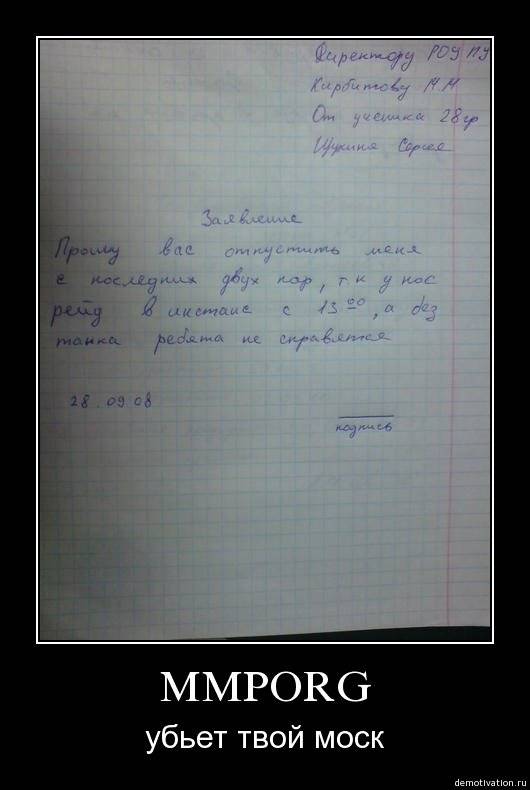 Директору РОУ ПУ
Кирбитову М.М
От ученика 28 гр
Щукина Сергея
Заявление
Прошу вас отпустить меня
с последних двух пар, т.к у нас
рейд в инстанс с 13 00, а без
танка ребята не справятся
28.09.08
подпись
MMPORG
убьет твой моск
demotivation.ru